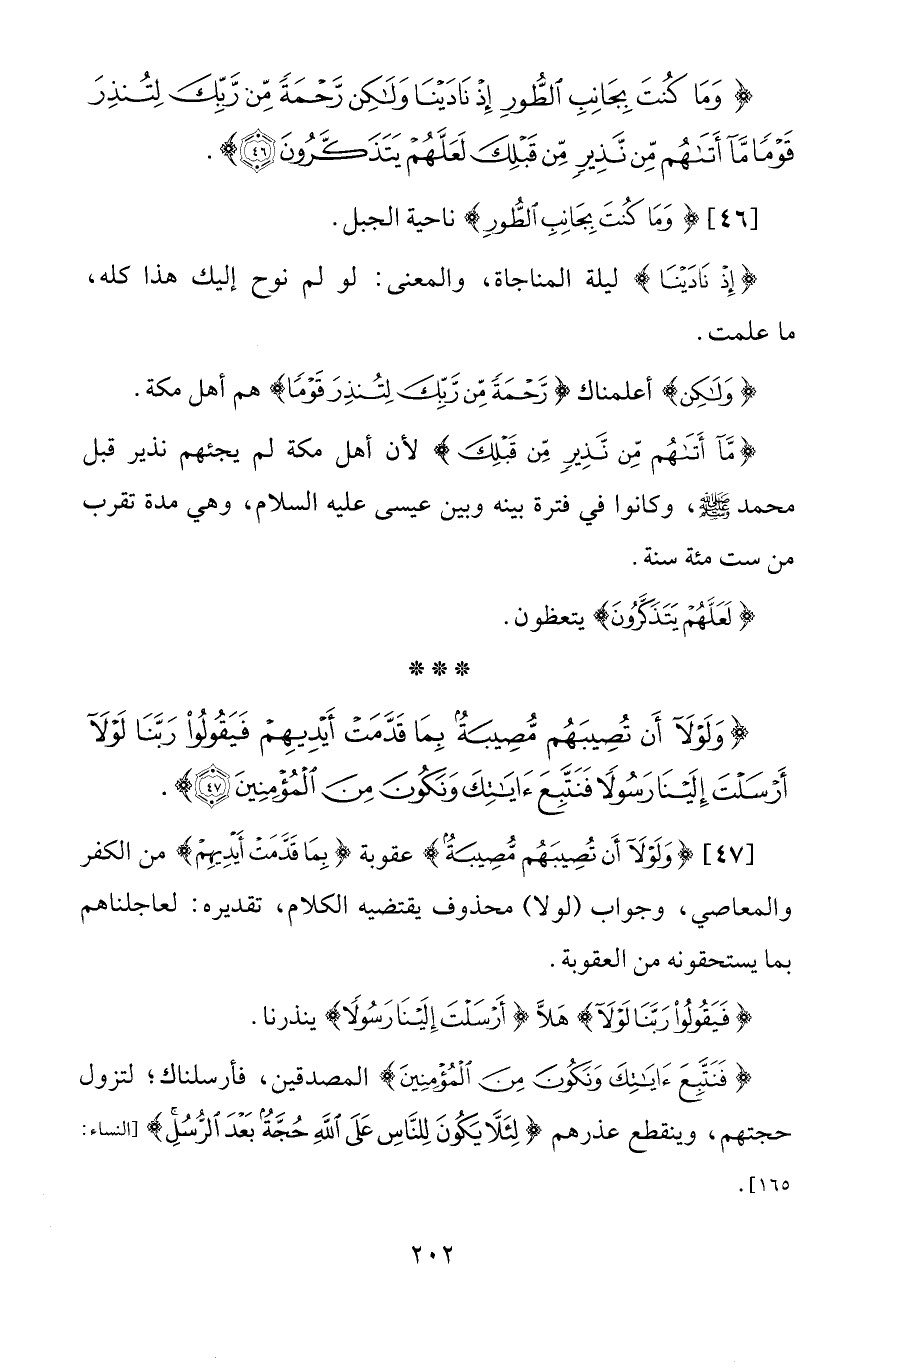 ﴿ وَمَا كُنتَ بِجَانِبِ ٱلطُّورِ إِذْ نَادَيْنَا وَلَٰكِن رَّحْمَةً مِّن رَّبِّكَ لِتُنذِرَ
قَوْمًا مَّآ أَتَىٰهُم مِّن نَّذِيرٍ مِّن قَبْلِكَ لَعَلَّهُمْ يَتَذَكَّرُونَ ٤٦ ﴾ .
[٤٦] ﴿ وَمَا كُنتَ بِجَانِبِ ٱلطُّورِ ﴾ ناحية الجبل .
﴿ إِذْ نَادَيْنَا ﴾ ليلة المناجاة، والمعنى: لو لم نوح إليك هذا كله،
ما علمت .
﴿ وَلَٰكِن ﴾ أعلمناك ﴿ رَّحْمَةً مِّن رَّبِّكَ لِتُنذِرَ قَوْمًا ﴾ هم أهل مكة .
﴿ مَّآ أَتَىٰهُم مِّن نَّذِيرٍ مِّن قَبْلِكَ ﴾ لأن أهل مكة لم يجئهم نذير قبل
محمد ﷺ، وكانوا في فترة بينه وبين عيسى عليه السلام، وهي مدة تقرب
من ست مئة سنة .
﴿ لَعَلَّهُمْ يَتَذَكَّرُونَ ﴾ يتعظون .
* * *
﴿ وَلَوْلَآ أَن تُصِيبَهُم مُّصِيبَةٌۢ بِمَا قَدَّمَتْ أَيْدِيهِمْ فَيَقُولُوا۟ رَبَّنَا لَوْلَآ
أَرْسَلْتَ إِلَيْنَا رَسُولًا فَنَتَّبِعَ ءَايَٰتِكَ وَنَكُونَ مِنَ ٱلْمُؤْمِنِينَ ٤٧ ﴾ .
[٤٧] ﴿ وَلَوْلَآ أَن تُصِيبَهُم مُّصِيبَةٌۢ ﴾ عقوبة ﴿ بِمَا قَدَّمَتْ أَيْدِيهِمْ ﴾ من الكفر
والمعاصي، وجواب (لولا) محذوف يقتضيه الكلام، تقديره: لعاجلناهم
بما يستحقونه من العقوبة .
﴿ فَيَقُولُوا۟ رَبَّنَا لَوْلَآ ﴾ هَلاَّ ﴿ أَرْسَلْتَ إِلَيْنَا رَسُولًا ﴾ ينذرنا .
﴿ فَنَتَّبِعَ ءَايَٰتِكَ وَنَكُونَ مِنَ ٱلْمُؤْمِنِينَ ﴾ المصدقين، فأرسلناك؛ لتزول
حجتهم، وينقطع عذرهم ﴿ لِئَلَّا يَكُونَ لِلنَّاسِ عَلَى ٱللَّهِ حُجَّةٌۢ بَعْدَ ٱلرُّسُلِ ۚ ﴾ [النساء:
١٦٥] .
٢٠٢